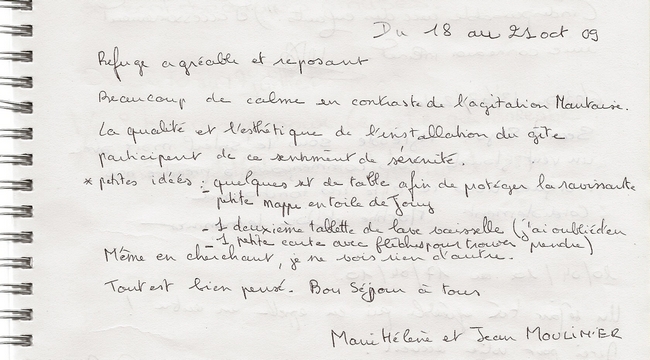 Du 18 au 21 oct 09
Refuge agréable et reposant
Beaucoup de calme en contraste de l'agitation Nantaise.
La qualité et l'esthétique de l'installation du gîte
participent de ce sentiment de sérénité.
* petites idées : quelques set de table afin de protéger la ravissante
petite nappe en toile de Jouy
- 1 deuxième tablette de lave vaisselle (j'ai oublié d'en
prendre)
- 1 petite carte avec fléches pour trouver
Même en cherchant, je ne vois rien d'autre.
Tout est bien pensé. Bon Séjour à tous
Marie Hélène et Jean MOULINIER